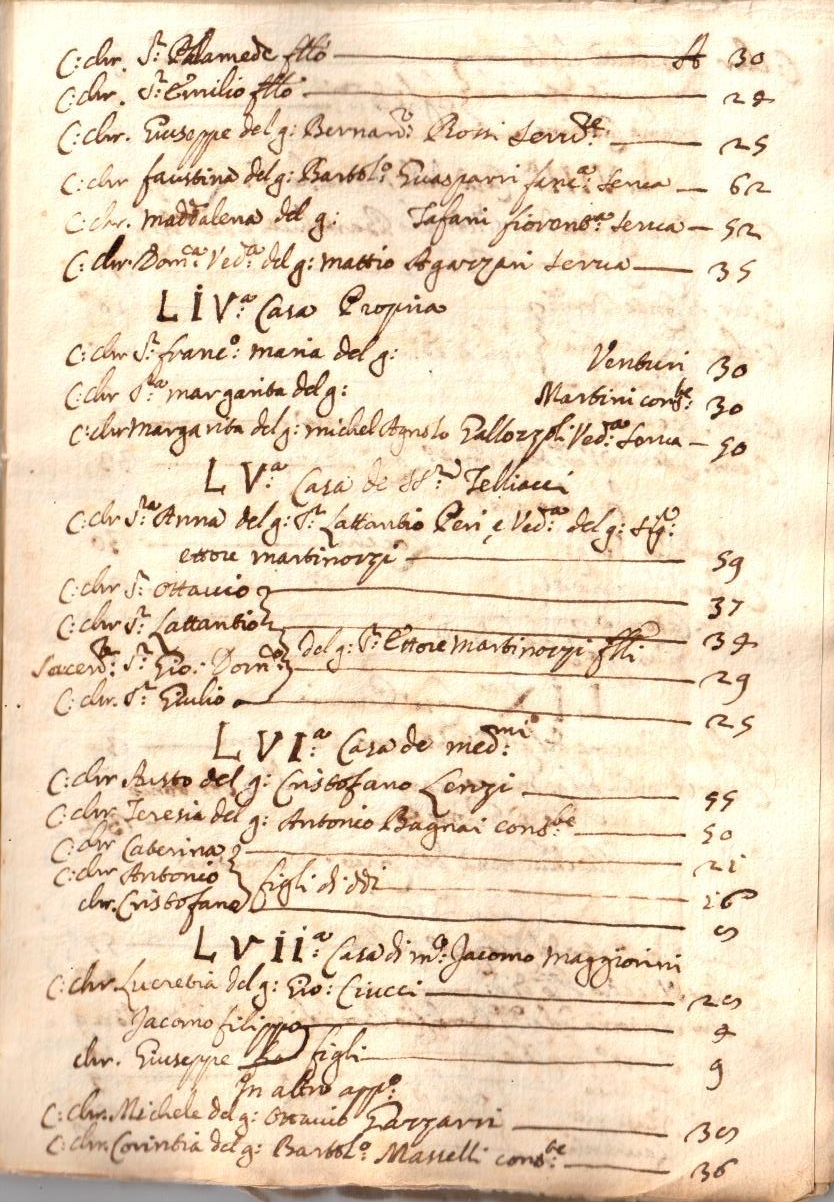 C: chr. Sr: Palamede fllo — A 30
C: chr. Sr: Emilio fllo — 24
C: chr. Giuseppe del g: Bernardo: Rossi Servre: — 25
C: chr faustina del g: Bartolo: Guasparri sanca: serva — 62
C: chr. maddalena del g: Tafani fiorenta: serva — 52
C: chr. Domca: Veda: del g: mattio Agazzari serva — 35
LIV:a Casa Propria
C: chr Sr: franco: maria del g: Venturi 30
C: chr Sra: margarita del g: Martini consbe: 30
C: chr margarita del g: michel Agnolo Gallozzoli Veda: serva — 50
LV:a Casa de SSri: Telliacci
C: chr Sra: Anna del g: Sr: Lattantio Peri, e Veda: del g: Sigr:
ettore martinozzi — 59
C: chr Sr: Ottavio — 37
C: chr Sr: Lattantio — 34
del g: Sr: Ettore Martinozzi flli
Sacerdte: Sr: Gio: Domco: — 29
C: chr. Sr: Giulio — 25
LVI:a Casa de medmi:
C: chr Austo del g: Cristofano Lenzi — 55
C: chr. Teresia del g: Antonio Bagnai consbe: — 50
C: chr Caterina — 21
C: chr Antonio figli di ddi — 16
chr. Cristofano — 9
LVII:a Casa di mo: Jacomo Maggiorini
C: chr. Lucretia del g: Gio: Ciucci — 29
Jacomo filippo — 4
chr. Giuseppe figli — 9
In altro appo:
C: chr. Michele del g: Ottavio Gazzarri — 39
C: chr. Corintia del g: Bartolo: Masselli consbe: — 36